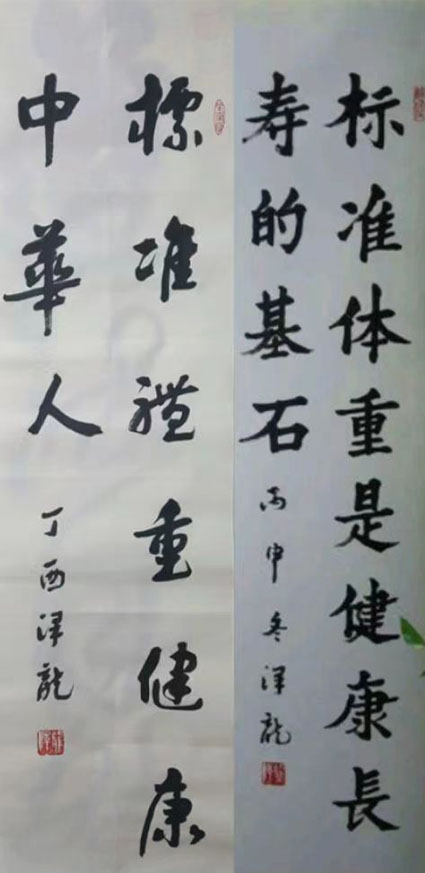 标准体重是健康長
寿的基石
丙申冬泽龍
標准體重健康
中華人
丁酉泽龍